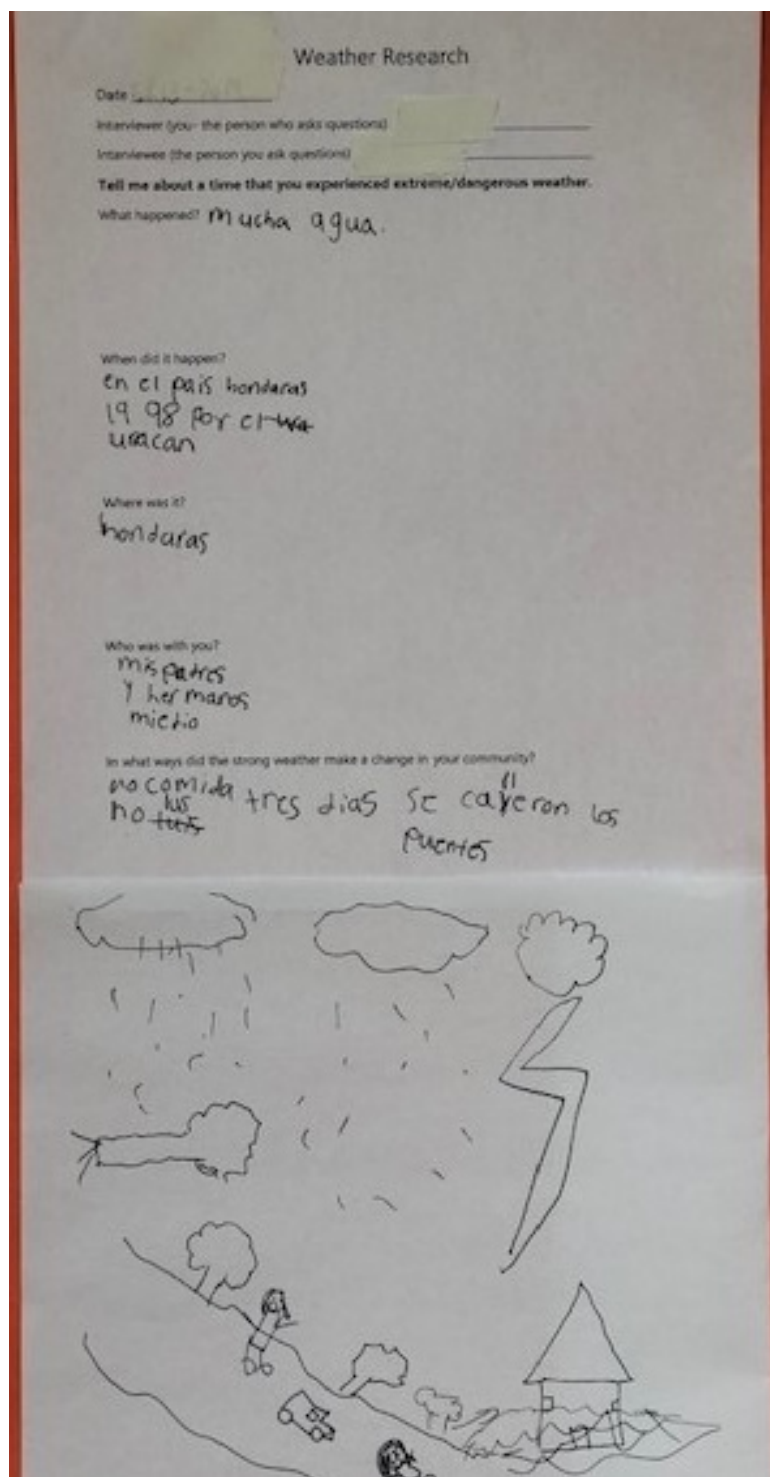 Weather Research
Date
Interviewer (you- the person who asks questions)
Interviewee (the person you ask questions)
Tell me about a time that you experienced extreme/dangerous weather.
What happened? mucha agua.
When did it happen?
en el pais honduras
1998 por el
uracan
Where was it?
honduras
Who was with you?
mis patres
y hermanos
miedio
In what ways did the strong weather make a change in your community?
no comida tres dias se calleron los
no lus puentes